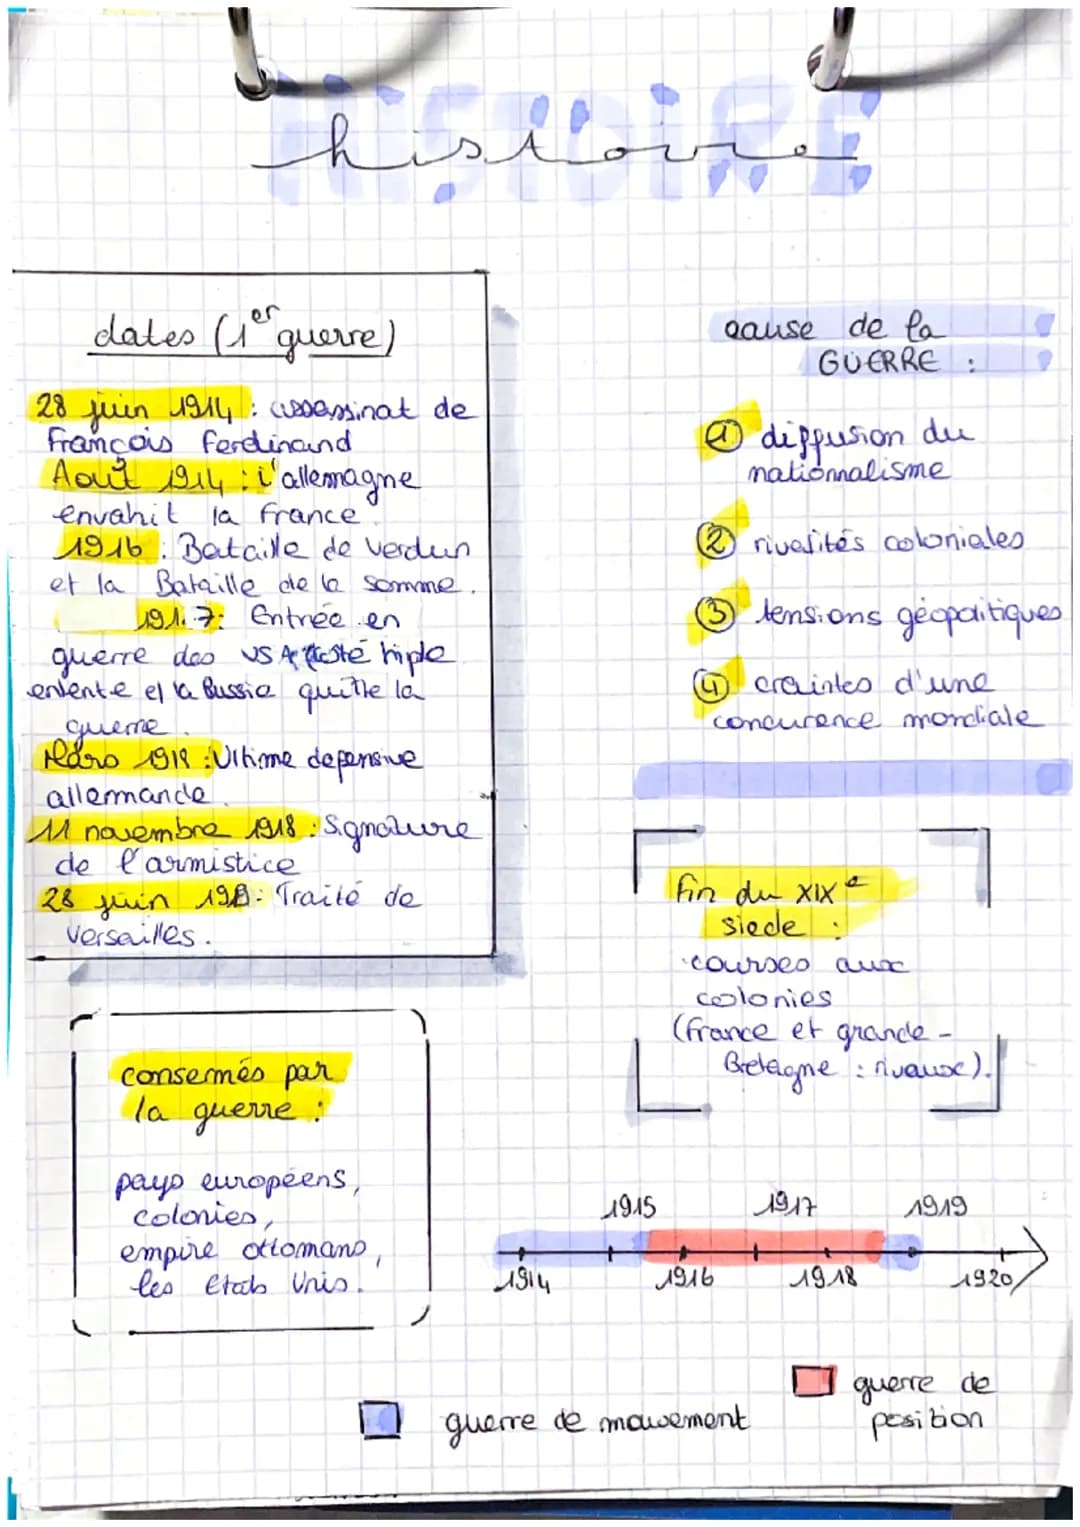 HISTOIRE
histoire
dates (1er guerre)
28 juin 1914 : assassinat de
françois ferdinand
Août 1914 : l'allemagne
envahit la france.
1916 : Bataille de Verdun
et la Bataille de la somme.
1917: Entrée en
guerre des USA côté triple
entente et la Russie quitte la
guerre.
Mars 1918 : Ultime defensive
allemande.
11 novembre 1918 : Signature
de l'armistice
28 juin : Traité de
Versailles.
cause de la
GUERRE :
1 diffusion du
nationnalisme
2 rivalités coloniales
3 tensions géopolitiques
4 craintes d'une
concurence mondiale
fin du XIXe
siecle :
courses aux
colonies
(france et grande-
Bretagne : rivaux).
consernés par
la guerre :
pays européens,
colonies,
empire ottomans,
les Etats Unis.
1915 1917 1919
1914 1916 1918 1920
guerre de mouvement
guerre de
position